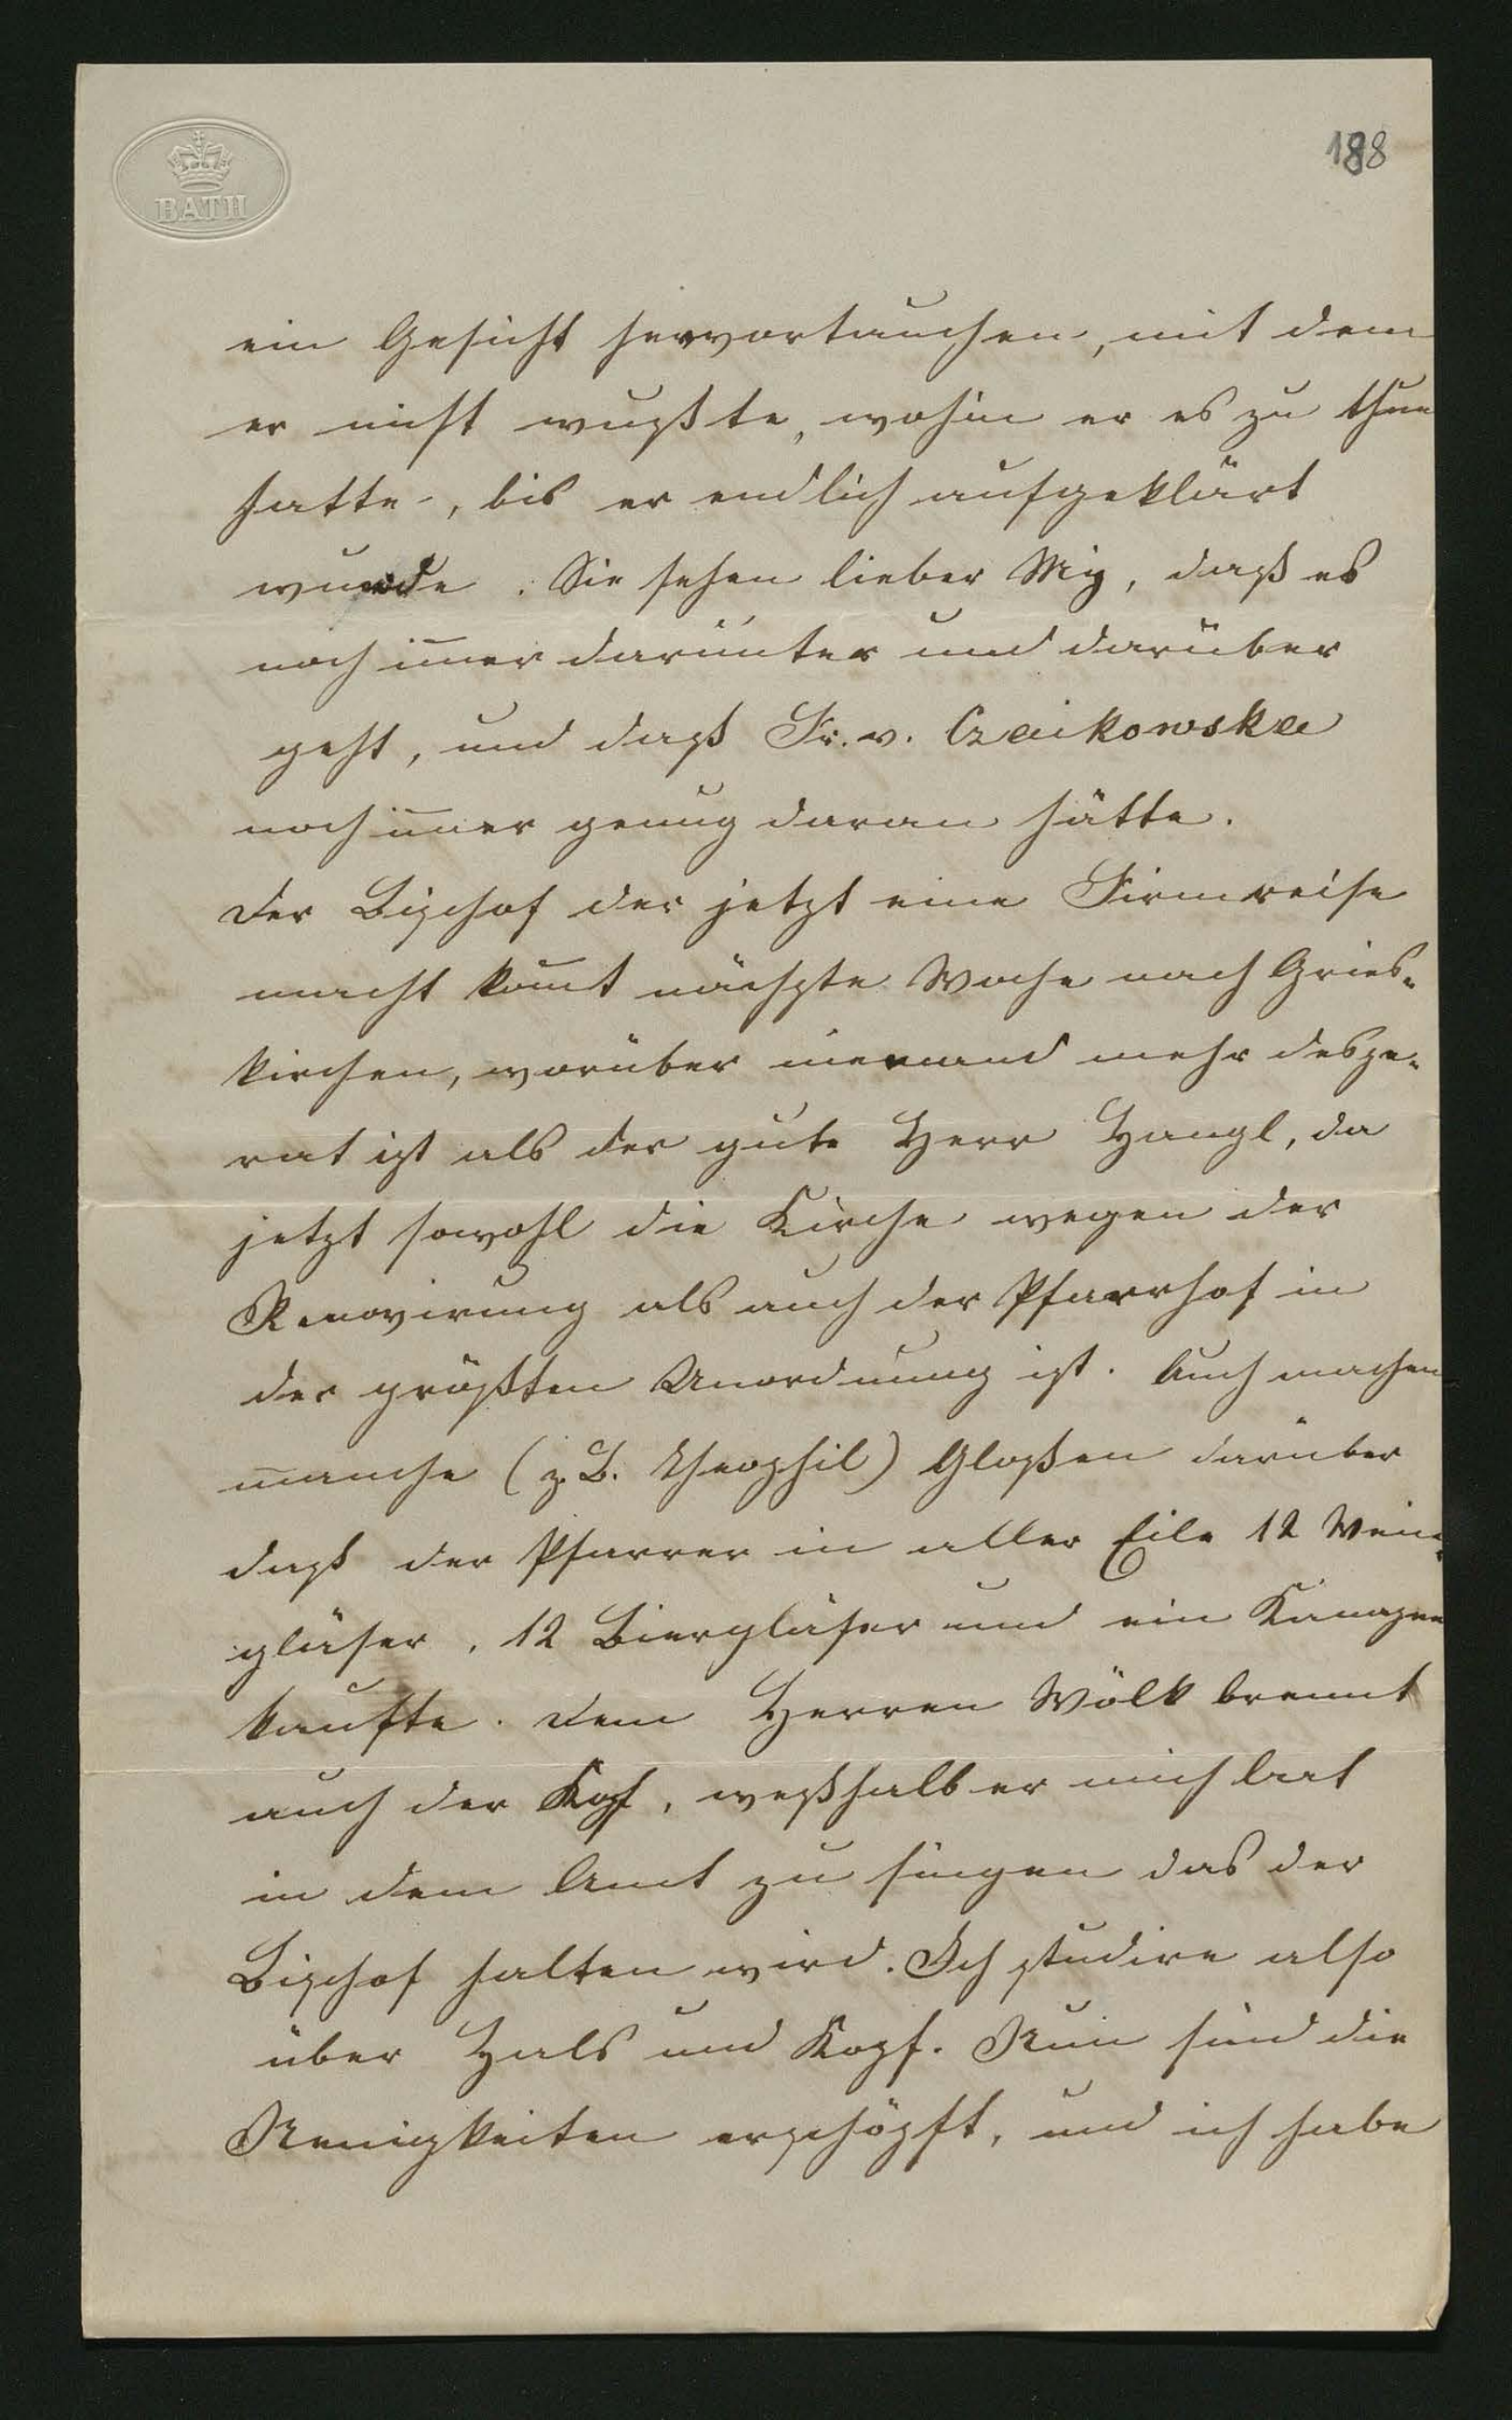 BATH
188
ein Gesicht hervortauchen, mit dem
er nicht wußte, wohin er es zu thun
hatte, bis er endlich aufgeklärt
wurde. Sie sehen lieber My, daß es
noch im̅er darunter und darüber
geht, und daß Fr. v. Czaikowska
noch im̅er genug daran hätte.
Der Bischof der jetzt eine Firmreise
macht kom̅t nächste Woche nach Gries-
kirchen, worüber niemand mehr despe-
rat ist als der gute Herr Hangl, da
jetzt sowohl die Kirche wegen der
Renovirung als auch der Pfarrhof in
der größten Unordnung ist. Auch machen
manche (z. B. Theophil) Gloßen darüber
daß der Pfarrer in aller Eile 12 Wein-
gläser, 12 Biergläser und ein Kanapee
kaufte. Dem Herren Wölk brennt
auch der Kopf, weßhalb er mich bat
in dem Amt zu singen das der
Bischof halten wird. Ich studire also
über Hals und Kopf. Nun sind die
Neuigkeiten erschöpft, und ich habe